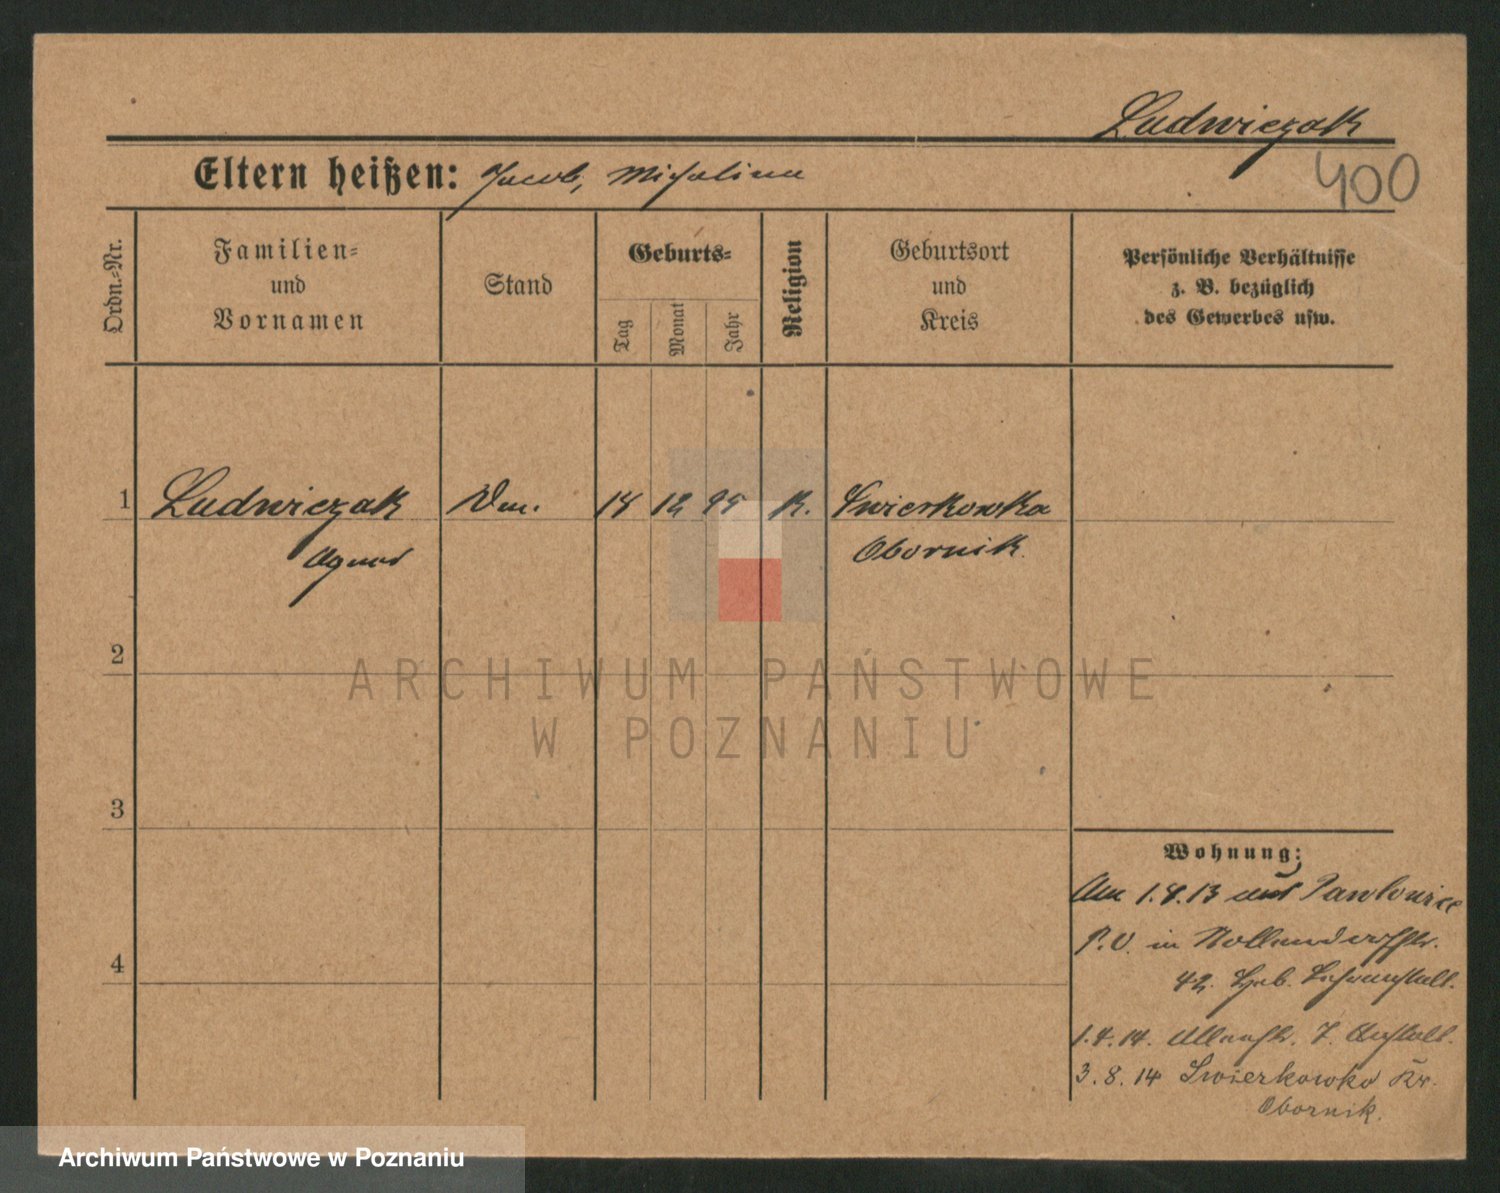 Ludwiczak
400
Eltern heißen: Jacob, Michalina
Ordn.-Nr.
Familien-
und
Vornamen
Stand
Geburts-
Tag
Monat
Jahr
Religion
Geburtsort
und
Kreis
Persönliche Verhältnisse
z. B. bezüglich
des Gewerbes usw.
1 Ludwiczak 12 95 K. Swierkowka
Agnes Obornik.
2
ARCHIWUM PAŃSTWOWE
W POZNANIU
3
Wohnung:
Am 1.4.13 aus Pawlowice
P.O. in Nollendorfstr.
4
42. Heb. Lehranstalt.
1.4.14. Anstalt.
3.8.14 Swierkowko Kr.
Obornik.
Archiwum Państwowe w Poznaniu